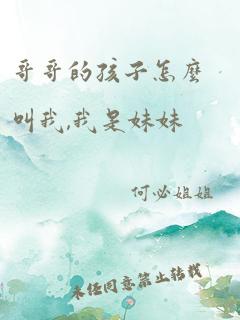 哥哥的孩子怎麽
叫我,我是妹妹
何必姐姐
未经同意禁止转载